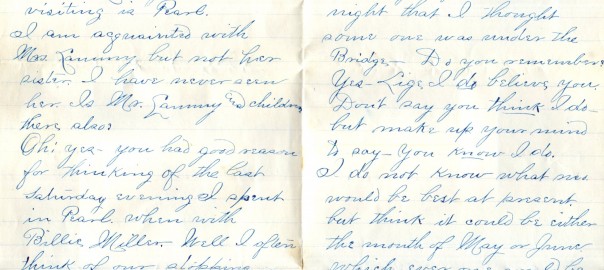 visiting is Pearl.
I am acquainted with
Mrs. Lammy but not her
sister. I have never seen
her. Is Mr. Lammy and children
there also?
Oh! yes- you had good reason
for thinking of the last
Saturday evening I spent
in Pearl when with
Billie Miller. Well I often
think of our stopping
night that I thought
some one was under the
Bridge- Do you remember?
Yes- Lige, I do believe you.
Don't say you think I do-
but make up your mind
to say- you know I do.
I do not know what mo.
would be best at present
but think it could be either
the mouth of May or June
which ever one